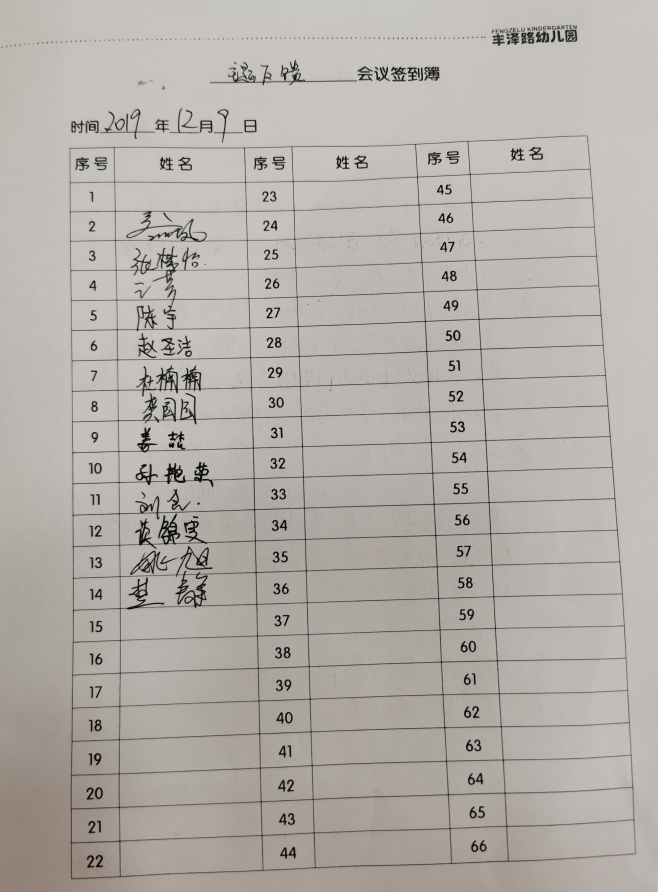 FENGZELU KINDERGARTEN
丰泽路幼儿园
会议签到簿
时间 2019 年 12 月 9 日
序号 姓名 序号 姓名 序号 姓名
1 23 45
2 24 46
3 张 怡 25 47
4 26 48
5 陈宇 27 49
6 赵圣洁 28 50
7 杜楠楠 29 51
8 园园 30 52
9 姜喆 31 53
10 孙艳英 32 54
11 刘 33 55
12 黄锦雯 34 56
13 姚旭 35 57
14 楚 36 58
15 37 59
16 38 60
17 39 61
18 40 62
19 41 63
20 42 64
21 43 65
22 44 66